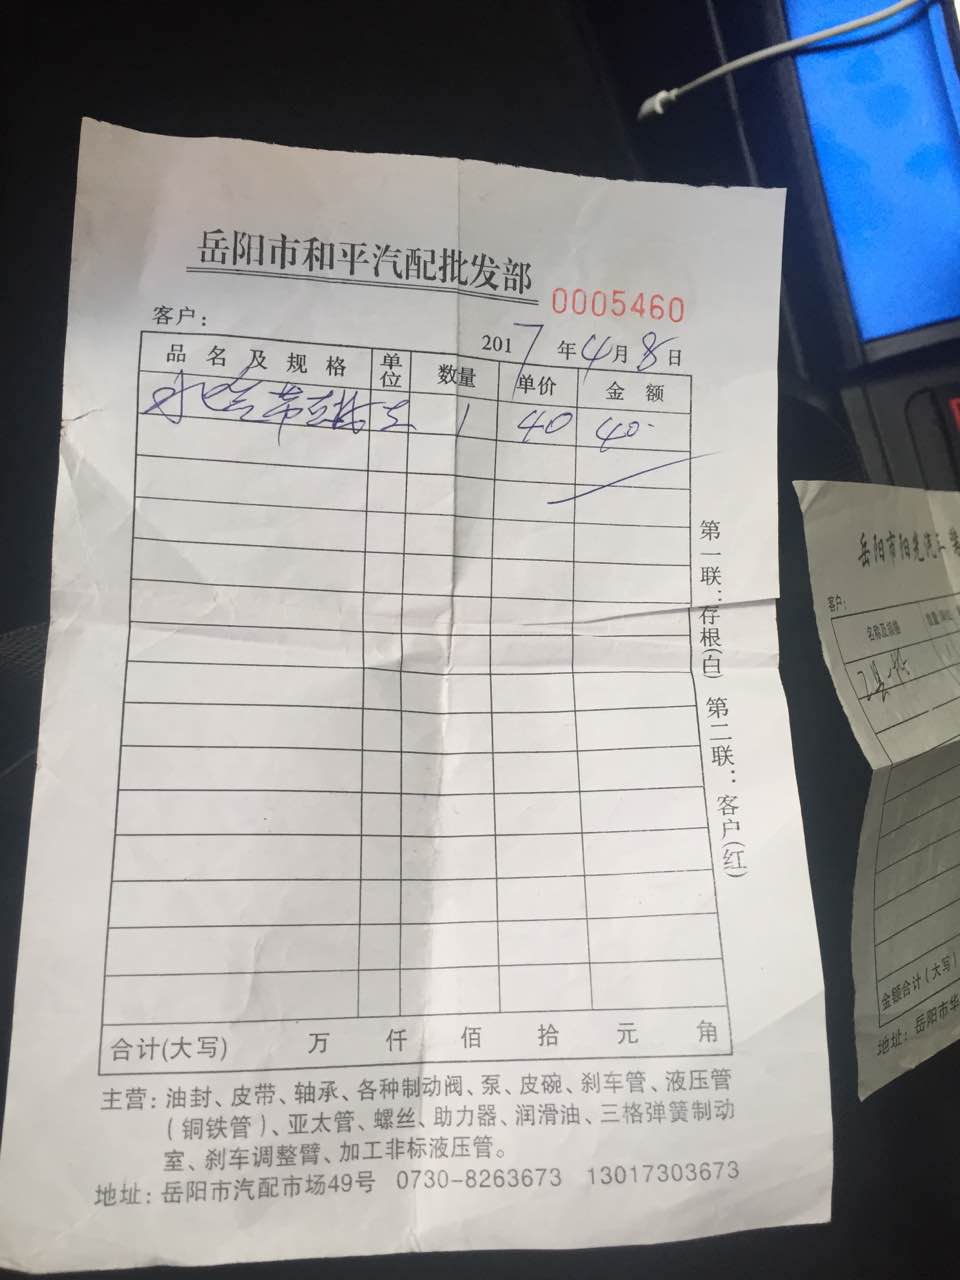 岳阳市和平汽配批发部
0005460
客户: 2017年4月8日
品名及规格 单位 数量 单价 金额
1 40 40
第一联:存根(白) 第二联:客户(红)
合计(大写) 万 仟 佰 拾 元 角
主营:油封、皮带、轴承、各种制动阀、泵、皮碗、刹车管、液压管
(铜铁管)、亚太管、螺丝、助力器、润滑油、三格弹簧制动
室、刹车调整臂、加工非标液压管。
地址:岳阳市汽配市场49号 0730-8263673 13017303673
岳阳市阳光汽
客户:
名称及规格 数量
金额合计(大写)
地址:岳阳市华